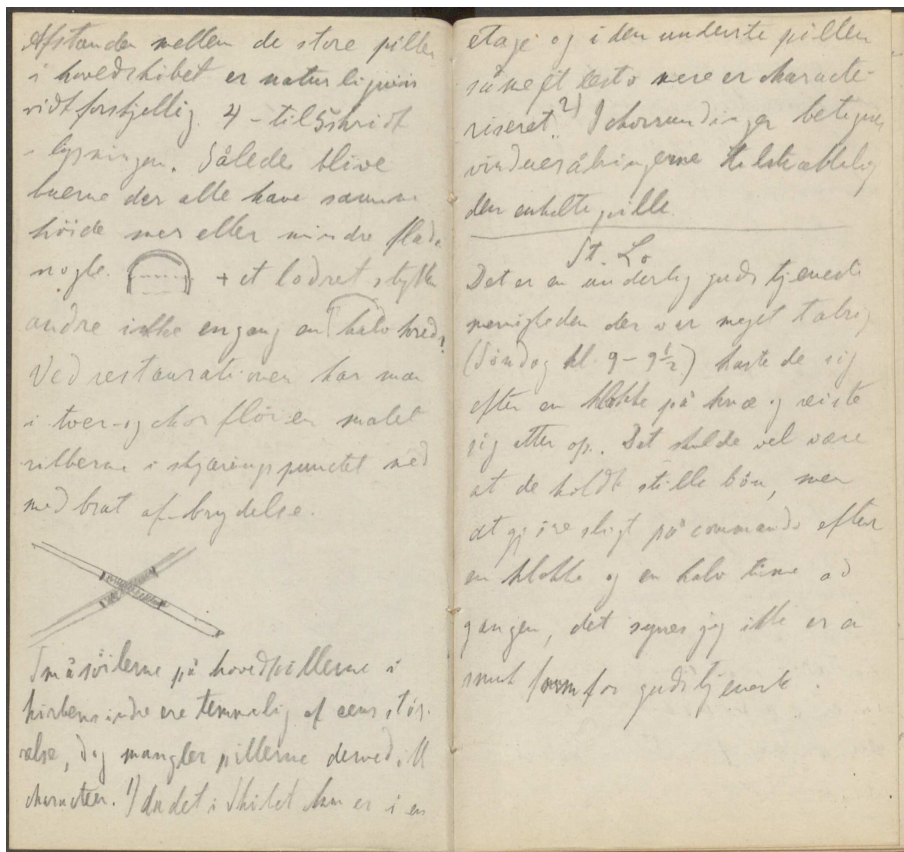 Afstanden mellem de store piller
i hovedskibet er naturligviis
vidt forskjellig. 4 - til 5 skridt
lysningen. Således blive
buerne der alle have samme
höide mer eller mindre flade
nogle + et lodret stykke
andre ikke engang en halv kreds.
Ved restaurationen har man
i tver- og chor fløien malet
ribberne i skjæringspunctet
med brat afbrydelse.
Småsöilerne på hovedpillerne i
kirkens indre ere temmelig af eens stör-
relse, dog mangler pillerne derved
character. 1) da det i skibet kun er i en
etage og i den underste pillen
således et desto mere er characte-
riseret. 2) I chorrundinger betegnes
vinduesåbningerne
den enkelte pille.
St. Lo
Det er en underlig gudstjeneste
menigheden der var meget talrig
(Söndag kl. 9 - 9 1/2) kaste de sig
efter en klokke på knæ og reiste
sig etter op. Det skulde vel være
at de holdt stille bön, men
at gjöre sligt på commando efter
en klokke og en halv time ad
gangen, det synes jeg ikke er en
smuk form for gudstjeneste.